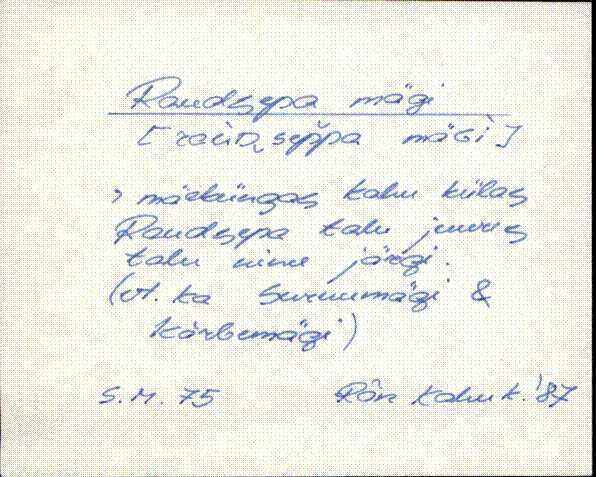 Raudsepa mägi
[raùD, sep̌pa mäGì]
, mäeküngas Kahu külas
Raudsepa talu juures
talu nime järgi.
(vt. ka Surnumägi &
Kõrbemägi)
S.M. 75 Rõn Kahu k. '87